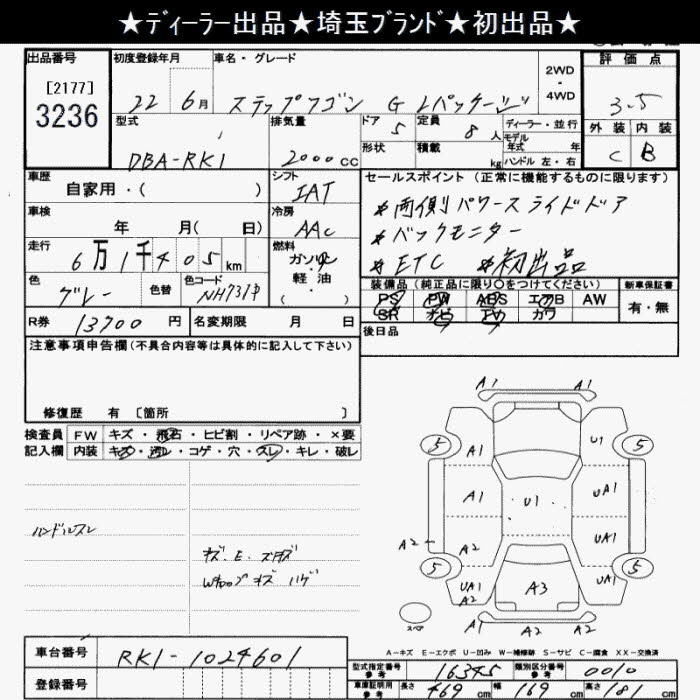 ★ディーラー出品★埼玉ブランド★初出品★
出品番号 初度登録年月 車名・グレード 2WD ・ 4WD 評価点
[2177]
3236
22 6月 ステップワゴン G Lパッケージ 3.5
型式 排気量 ドア 定員 ディーラー・並行 外装 内装
DBA-RK1 2000cc 5 8人 モデル年式 年 C B
形状 積載 kg ハンドル 左・右
車歴 シフト セールスポイント (正常に機能するものに限ります)
自家用・( ) IAT
＊両側パワースライドドア
車検 冷房
年 月( 日) AAC ＊バックモニター
走行 燃料
6万1千405km ガソリン・軽油・( ) ＊ETC ＊初出品
色 色替 色コード 装備品 (純正品に限り○をつけてください) 新車保証書
グレー NH731P PS PW ABS エアB AW 有・無
SR ナビ TV カワ
R券 13700円 名変期限 月 日 後日品
注意事項申告欄(不具合内容等は具体的に記入して下さい)
修復歴 有 [箇所 ]
検査員 FW キズ・飛石・ヒビ割・リペア跡・×要
記入欄 内装 キズ・汚レ・コゲ・穴・スレ・キレ・破レ
ハンドルスレ
A1 A1
5 A1 U1 5
A1 U1 UA1
A2 A2 UA1
5 UA1 A2 A3 UA1 5
スペア
A1 A2 A2
A-キズ E-エクボ U-凹み W-補修跡 S-サビ C-腐食 XX-交換済
車台番号 RK1-1024601
登録番号
型式指定番号 参考 16345 類別区分番号 参考 0010
車庫証明用 参考 長さ 469cm 幅 169cm 高さ 181cm